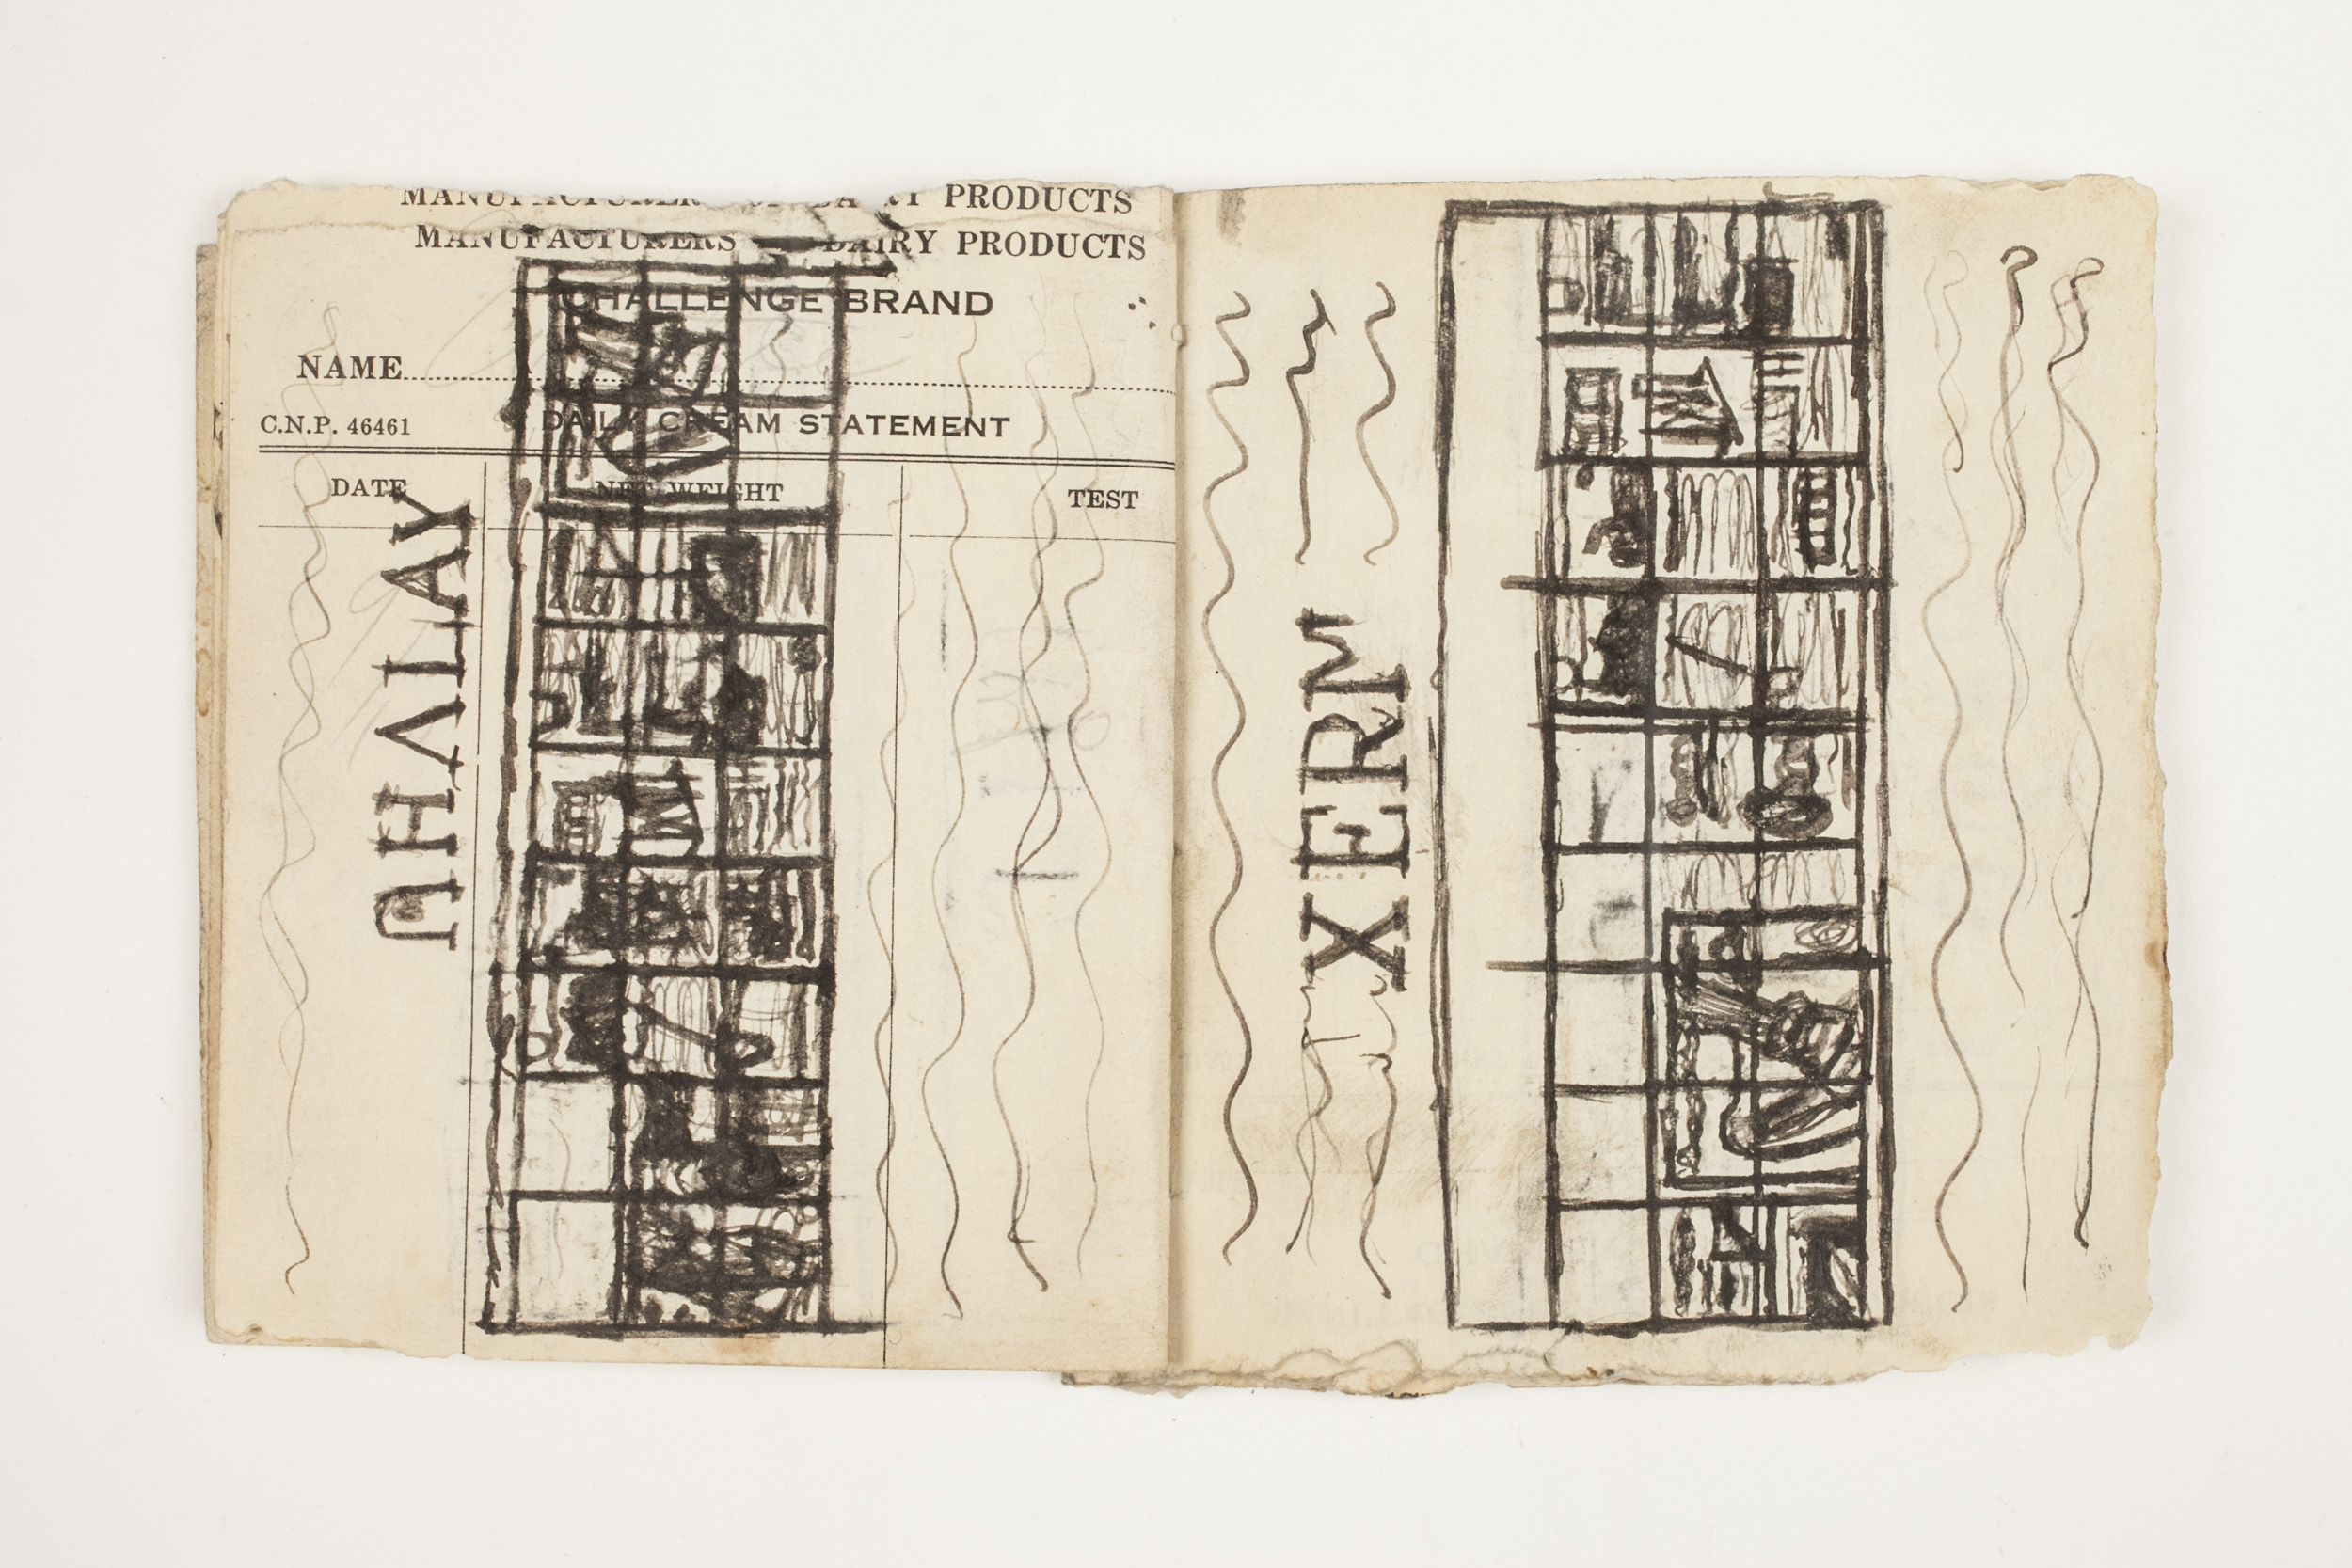 PRODUCTS
MANUFACTURERS DAIRY PRODUCTS
CHALLENGE BRAND
NAME
C.N.P. 46461 DAILY CREAM STATEMENT
DATE NET WEIGHT TEST
XERM